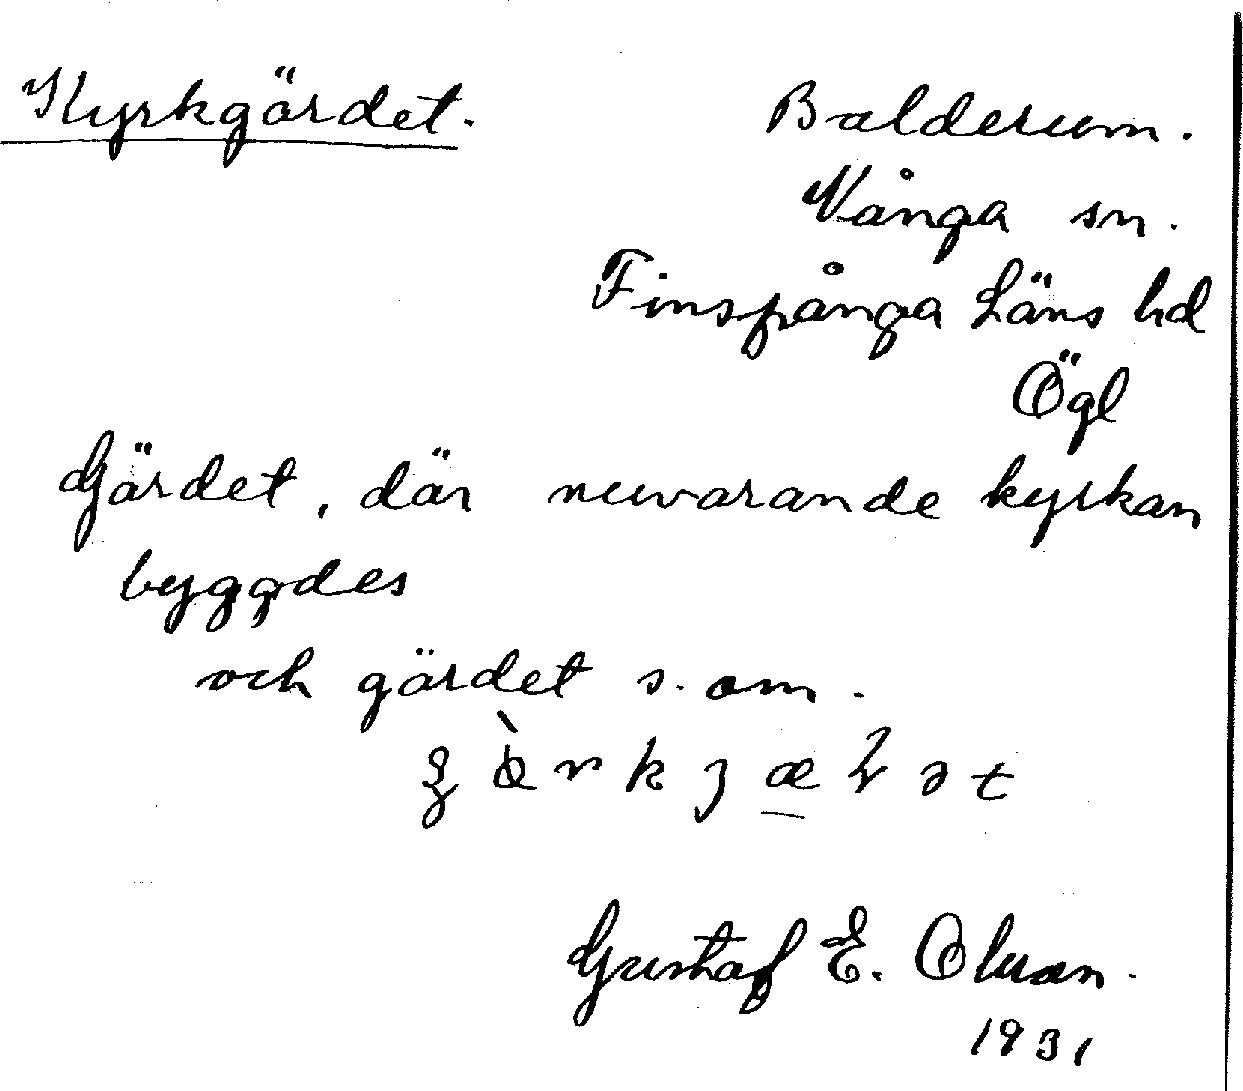 Kyrkgärdet.
Balderum.
Vånga sn.
Finspånga Läns hd
Ögl
Gärdet, där nuvarande kyrkan
byggdes
och gärdet s. om.
Gustaf E. Olsson.
1931